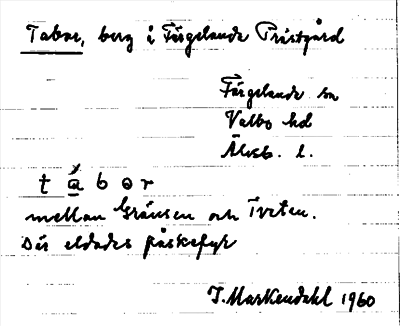 Tabor, berg å Färgelanda Prästgård
Färgelanda sn
Valbo hd
Älvsb. l.
t a̱ b o r
mellan Gränsen och Tveten.
Där eldades påskefyr
J. Markendahl 1960